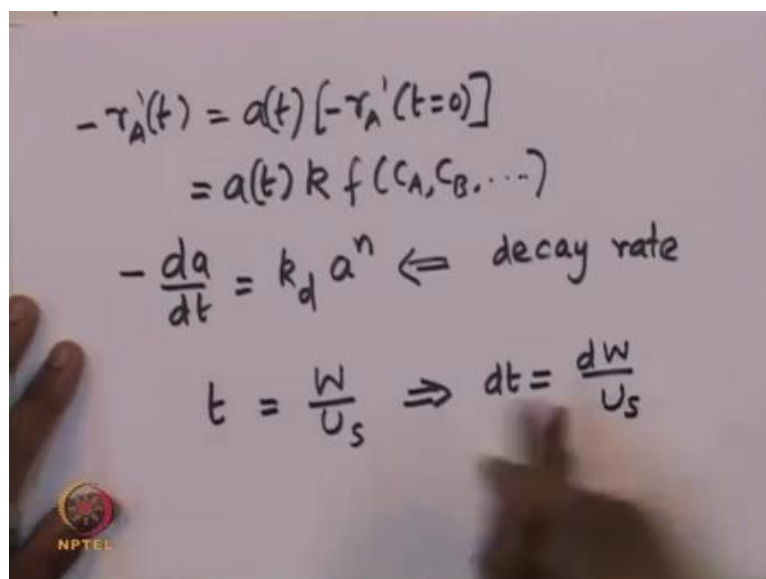 -r_A'(t) = a(t) [-r_A'(t=0)]
= a(t) k f (C_A, C_B, ....)
-da/dt = k_d a^n ⇐ decay rate
t = W/U_S ⇒ dt = dW/U_S
NPTEL